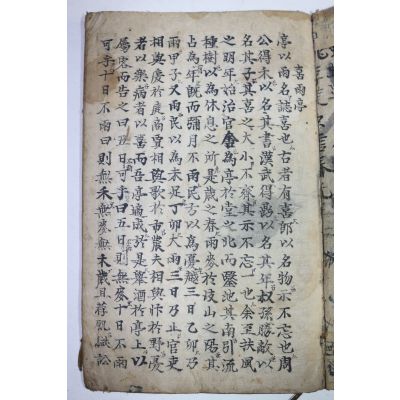 喜雨亭
亭以雨名誌喜也古者有喜卽以名物示不忘也周
公得禾以名其書漢武得鼎以名其年叔孫勝敵以
名其子其喜之大小不齊其示不忘一也余至扶風
之明年始治官舍為亭於堂之北而鑿池其南引流
種樹以為休息之所是歲之春雨麥於岐山之陽其
占為有年旣而彌月不雨民方以為憂越三日乙卯乃
雨甲子又雨民以為未足丁卯大雨三日乃止官吏
相與慶於庭商賈相與歌於市農夫相與忭於野憂
者以樂病者以喜而吾亭適成於是舉酒於亭上以
屬客而告之曰五日可乎曰五日則無麥十日不雨
可乎十日不雨曰則無禾無麥無禾歲且荐飢獄訟